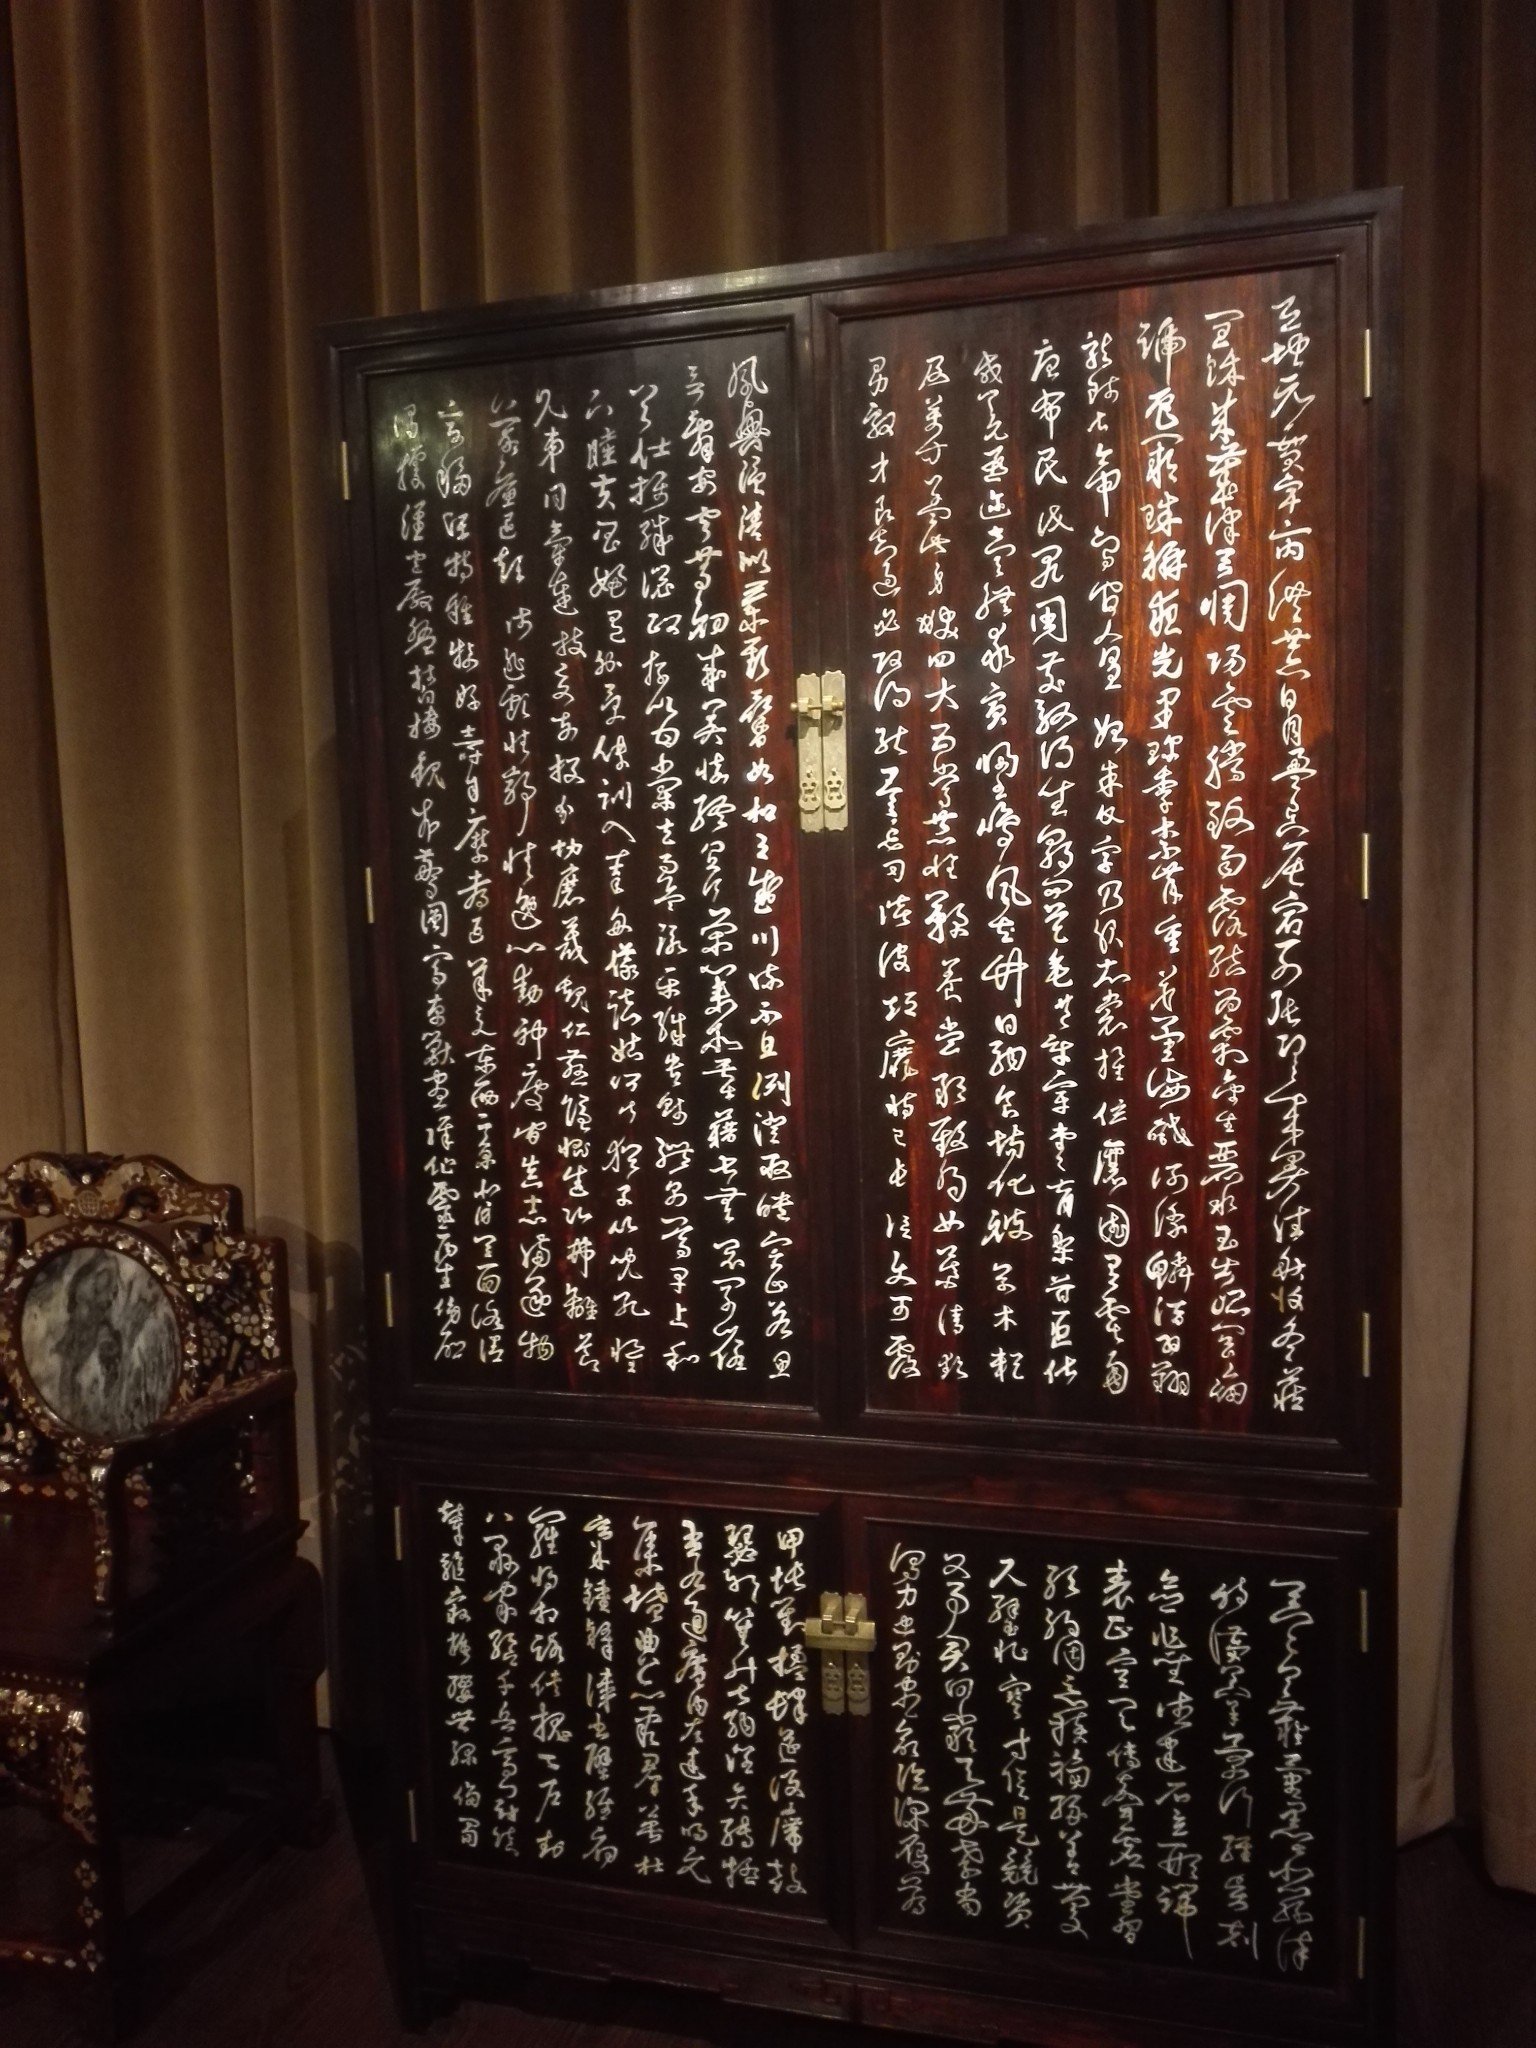 天地元黃宇宙洪荒日月盈昃辰宿列張寒來暑往秋收冬藏
閏餘成歲律呂調陽雲騰致雨露結為霜金生麗水玉出崑岡劍
號巨闕珠稱夜光果珍李柰菜重芥薑海鹹河淡鱗潛羽翔
龍師火帝鳥官人皇始制文字乃服衣裳推位讓國有虞陶
唐弔民伐罪周發殷湯坐朝問道垂拱平章愛育黎首臣伏
戎羌遐邇壹體率賓歸王鳴鳳在竹白駒食場化被草木賴
及萬方蓋此身髮四大五常恭惟鞠養豈敢毀傷女慕清潔
男效才良知過必改得能莫忘罔談彼短靡恃己長信使可覆
器欲難量墨悲絲染詩
讚羔羊景行維賢剋
念作聖德建名立形端
表正空谷傳聲虛堂習
聽禍因惡積福緣善慶
尺璧非寶寸陰是競資
父事君曰嚴與敬孝當
竭力忠則盡命臨深履薄
夙興溫凊似蘭斯馨如松之盛川流不息淵澄取映容止若思
言辭安定篤初誠美慎終宜令榮業所基籍甚無竟學優
登仕攝職從政存以甘棠去而益詠樂殊貴賤禮別尊卑上和
下睦夫唱婦隨外受傅訓入奉母儀諸姑伯叔猶子比兒孔懷
兄弟同氣連枝交友投分切磨箴規仁慈隱惻造次弗離節
義廉退顛沛匪虧性靜情逸心動神疲守真志滿逐物
意移堅持雅操好爵自縻都邑華夏東西二京背邙面洛浮
渭據涇宮殿盤鬱樓觀飛驚圖寫禽獸畫彩仙靈丙舍傍啟
甲帳對楹肆筵設席鼓
瑟吹笙升階納陛弁轉疑
星右通廣內左達承明既
集墳典亦聚群英杜
稾鍾隸漆書壁經府
羅將相路俠槐卿戶封
八縣家給千兵高冠陪
輦驅轂振纓世祿侈富